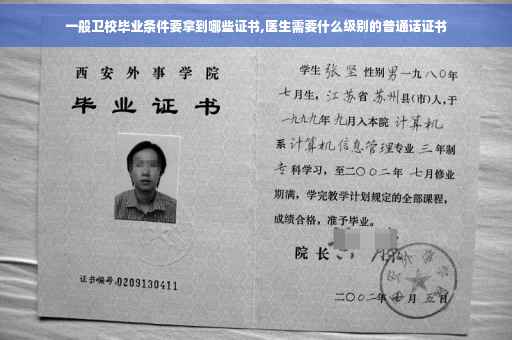 一般卫校毕业条件要拿到哪些证书,医生需要什么级别的普通话证书
西安外事学院
毕业证书
证书编号:0209130411
学生 张坚 性别男一九八〇年
七月生,江苏省苏州县(市)人,于
一九九九年九月入本院 计算机
系计算机信息管理专业 三年制
专科学习,至二〇〇二年 七月修业
期满,学完教学计划规定的全部课程,
成绩合格,准予毕业。
院长
二〇〇二年 月 五日